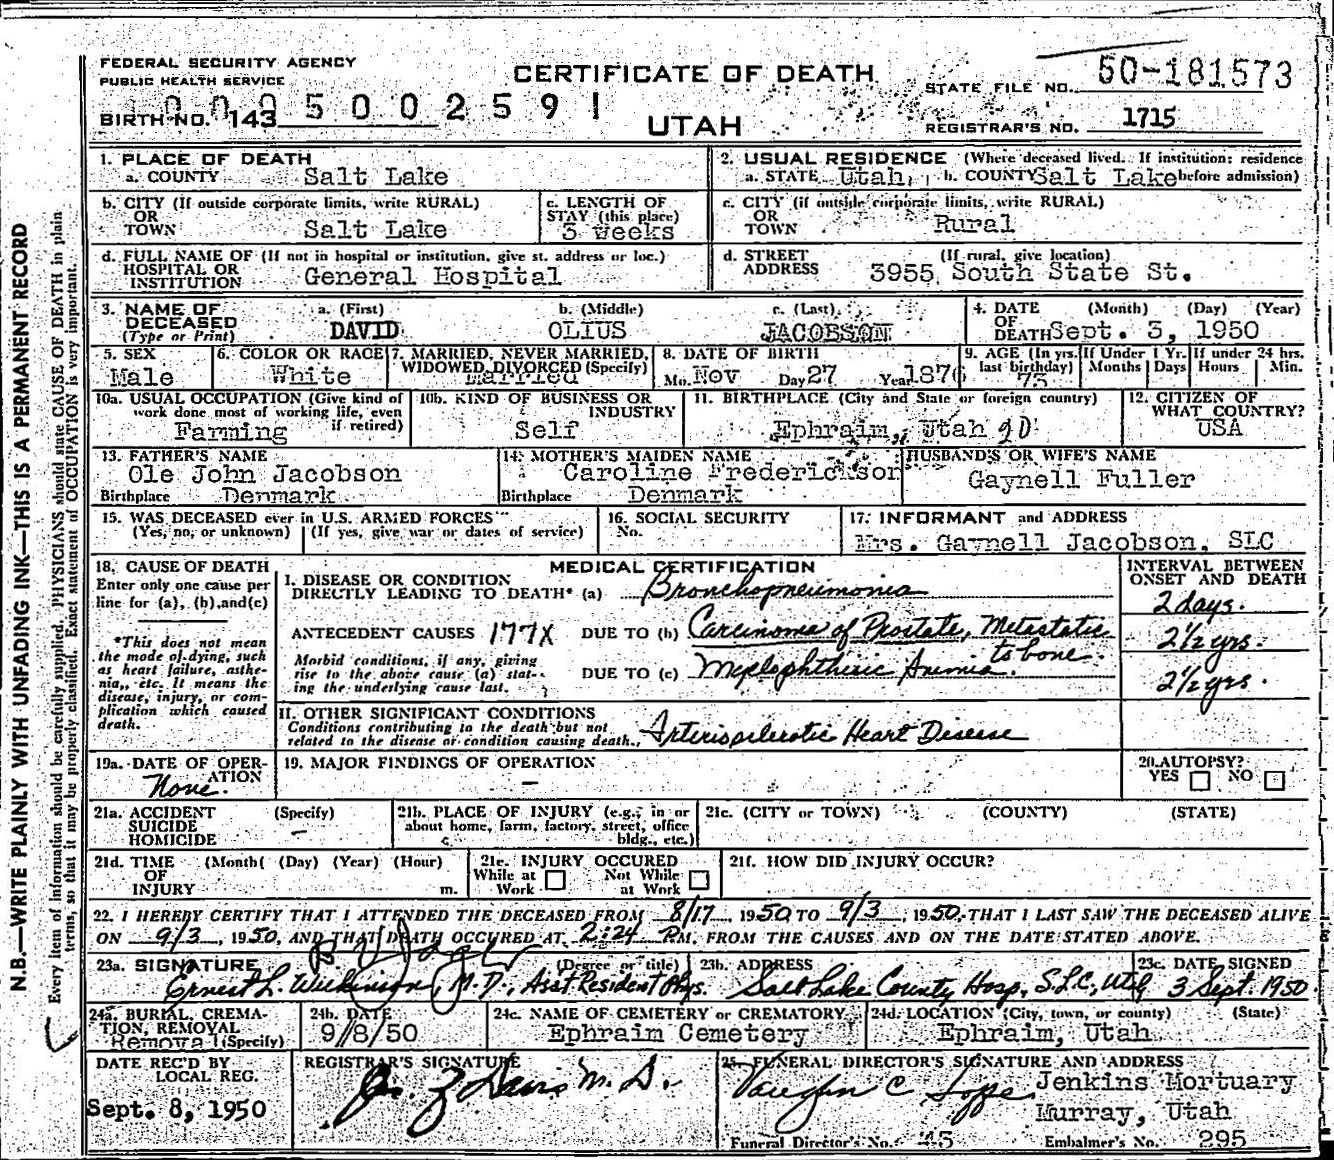 FEDERAL SECURITY AGENCY
PUBLIC HEALTH SERVICE
CERTIFICATE OF DEATH
UTAH
STATE FILE NO. 50-181573
BIRTH NO. 143
5 0 0 2 5 9 1
REGISTRAR'S NO. 1715
N.B.—WRITE PLAINLY WITH UNFADING INK—THIS IS A PERMANENT RECORD
Every item of information should be carefully supplied. PHYSICIANS should state CAUSE OF DEATH in plain
terms, so that it may be properly classified. Exact statement of OCCUPATION is very important.
1. PLACE OF DEATH
a. COUNTY Salt Lake
2. USUAL RESIDENCE (Where deceased lived. If institution: residence
a. STATE Utah, b. COUNTY Salt Lake before admission)
b. CITY (If outside corporate limits, write RURAL)
OR
TOWN Salt Lake
c. LENGTH OF
STAY (this place)
3 weeks
c. CITY (if outside corporate limits, write RURAL)
OR
TOWN Rural
d. FULL NAME OF (If not in hospital or institution, give st. address or loc.)
HOSPITAL OR
INSTITUTION General Hospital
d. STREET (If rural, give location)
ADDRESS 3955 South State St.
3. NAME OF
DECEASED
(Type or Print)
a. (First) b. (Middle) c. (Last)
DAVID OLIUS JACOBSON
4. DATE (Month) (Day) (Year)
OF
DEATH Sept. 3, 1950
5. SEX
Male
6. COLOR OR RACE
White
7. MARRIED, NEVER MARRIED,
WIDOWED, DIVORCED (Specify)
Married
8. DATE OF BIRTH
Mo. Nov Day 27 Year 1876
9. AGE (In yrs.
last birthday)
73
If Under 1 Yr.
Months Days
If under 24 hrs.
Hours Min.
10a. USUAL OCCUPATION (Give kind of
work done most of working life, even
if retired)
Farming
10b. KIND OF BUSINESS OR
INDUSTRY
Self
11. BIRTHPLACE (City and State or foreign country)
Ephraim, Utah
12. CITIZEN OF
WHAT COUNTRY?
USA
13. FATHER'S NAME
Ole John Jacobson
Birthplace Denmark
14. MOTHER'S MAIDEN NAME
Caroline Frederickson
Birthplace Denmark
HUSBAND'S OR WIFE'S NAME
Gaynell Fuller
15. WAS DECEASED ever in U.S. ARMED FORCES
(Yes, no, or unknown) (If yes, give war or dates of service)
16. SOCIAL SECURITY
No.
17. INFORMANT and ADDRESS
Mrs. Gaynell Jacobson, SLC
18. CAUSE OF DEATH
Enter only one cause per
line for (a), (b), and (c)
*This does not mean
the mode of dying, such
as heart failure, asthe-
nia, etc. It means the
disease, injury, or com-
plication which caused
death.
MEDICAL CERTIFICATION
I. DISEASE OR CONDITION
DIRECTLY LEADING TO DEATH* (a) Bronchopneumonia
ANTECEDENT CAUSES 177X DUE TO (b) Carcinoma of Prostate, Metastatic
to bone.
Morbid conditions, if any, giving
rise to the above cause (a) stat-
ing the underlying cause last.
DUE TO (c) Myelophthisic Anemia.
II. OTHER SIGNIFICANT CONDITIONS
Conditions contributing to the death but not
related to the disease or condition causing death. Arteriosclerotic Heart Disease
INTERVAL BETWEEN
ONSET AND DEATH
2 days.
2½ yrs.
2½ yrs.
19a. DATE OF OPER-
ATION
None.
19. MAJOR FINDINGS OF OPERATION
—
20. AUTOPSY?
YES NO
21a. ACCIDENT (Specify)
SUICIDE
HOMICIDE —
21b. PLACE OF INJURY (e.g., in or
about home, farm, factory, street, office
bldg., etc.)
21c. (CITY or TOWN) (COUNTY) (STATE)
21d. TIME (Month) (Day) (Year) (Hour)
OF
INJURY m.
21e. INJURY OCCURED
While at Not While
Work at Work
21f. HOW DID INJURY OCCUR?
22. I HEREBY CERTIFY THAT I ATTENDED THE DECEASED FROM 8/17, 1950, TO 9/3, 1950, THAT I LAST SAW THE DECEASED ALIVE
ON 9/3, 1950, AND THAT DEATH OCCURED AT 2:24 P.M. FROM THE CAUSES AND ON THE DATE STATED ABOVE.
23a. SIGNATURE (Degree or title)
Ernest L. Wilkinson, M.D., Asst Resident Phys.
23b. ADDRESS
Salt Lake County Hosp., S.L.C., Utah
23c. DATE SIGNED
3 Sept. 1950
24a. BURIAL, CREMA-
TION, REMOVAL
Removal (Specify)
24b. DATE
9/8/50
24c. NAME OF CEMETERY or CREMATORY
Ephraim Cemetery
24d. LOCATION (City, town, or county) (State)
Ephraim, Utah
DATE REC'D BY
LOCAL REG.
Sept. 8, 1950
REGISTRAR'S SIGNATURE
Davis M.D.
25. FUNERAL DIRECTOR'S SIGNATURE AND ADDRESS
Vaughn C
Jenkins Mortuary
Murray, Utah
Funeral Director's No. 45 Embalmer's No. 295